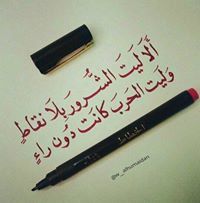 ألا ليت الشرور بلا نقاطٍ
وليت الحرب كانت دون راءٍ
@w_alhumaidan